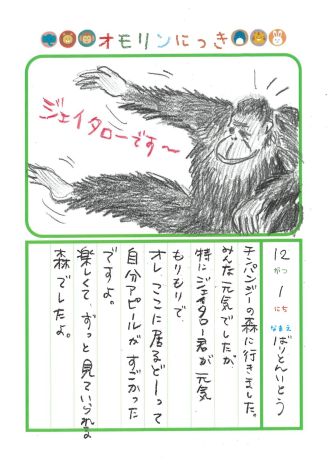 オモリンにっき
ジェイタローです〜
12がつ1にち
なまえ ばりとんいとう
チンパンジーの森に行きました。
みんな元気でしたが
特にジェイタロー君が元気
もりもりで
オレ、ここに居るどーって
自分アピールがすごかった
ですよ。
楽しくて、ずっと見ていられる
森でしたよ。